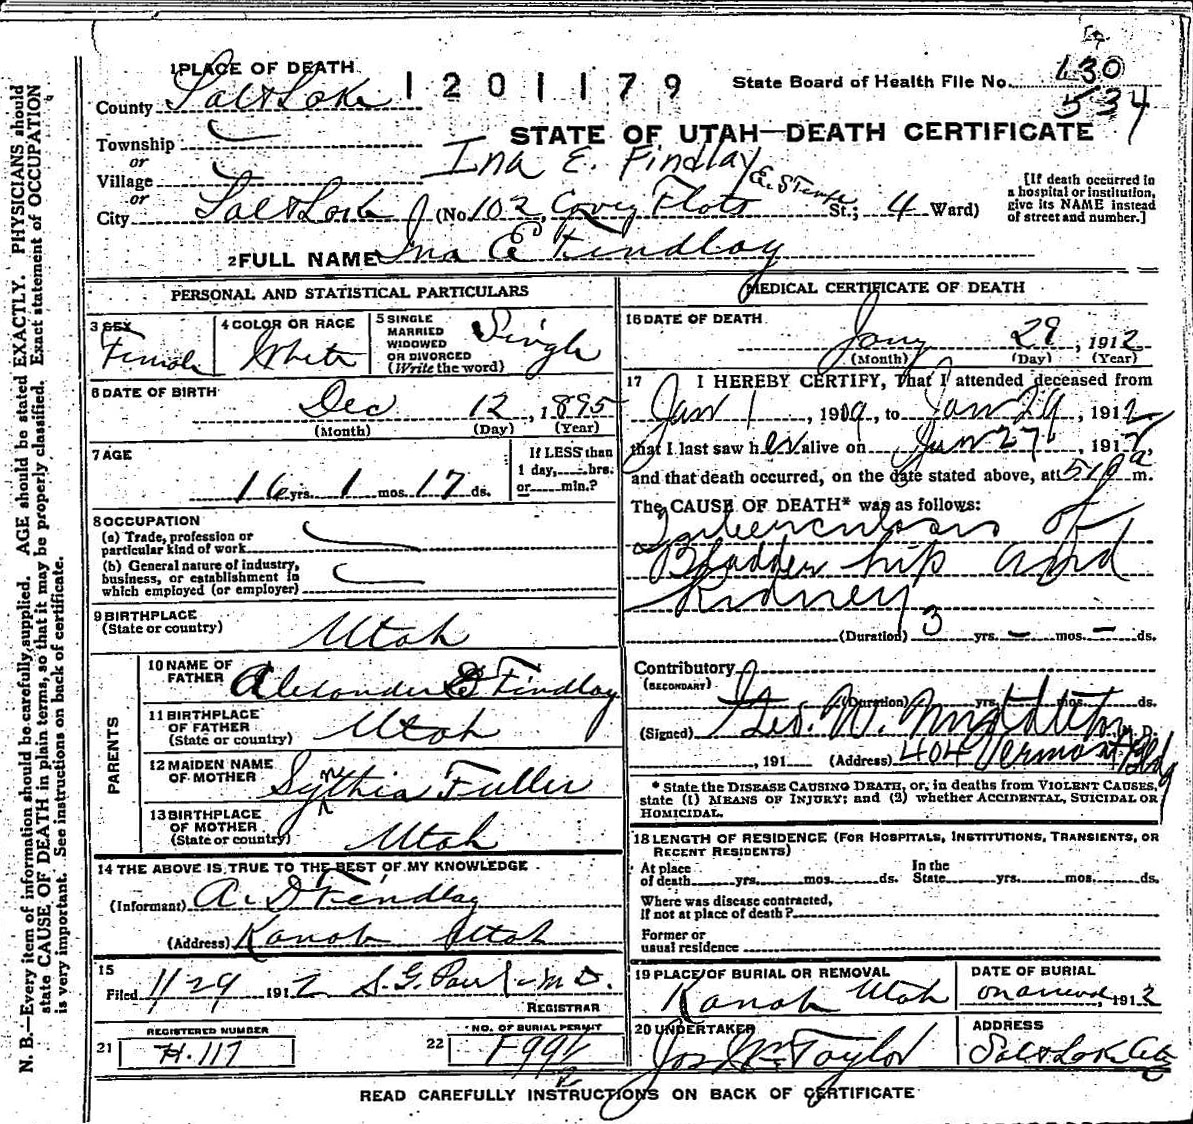 1 PLACE OF DEATH
1201179
State Board of Health File No. 130
534
County Salt Lake
STATE OF UTAH—DEATH CERTIFICATE
Township
or
Ina E. Findlay
Village
or
City Salt Lake (No. 102, Covey Flats E. S Temple St.; 4 Ward)
[If death occurred in
a hospital or institution,
give its NAME instead
of street and number.]
2 FULL NAME Ina E Findlay
PERSONAL AND STATISTICAL PARTICULARS
3 SEX Female
4 COLOR OR RACE White
5 SINGLE
MARRIED
WIDOWED
OR DIVORCED
(Write the word) Single
6 DATE OF BIRTH
Dec 12, 1895
(Month) (Day) (Year)
7 AGE
16 yrs. 1 mos. 17 ds.
If LESS than
1 day, hrs.
or min.?
8 OCCUPATION
(a) Trade, profession or
particular kind of work
(b) General nature of industry,
business, or establishment in
which employed (or employer)
9 BIRTHPLACE
(State or country) Utah
PARENTS
10 NAME OF
FATHER Alexander D Findlay
11 BIRTHPLACE
OF FATHER
(State or country) Utah
12 MAIDEN NAME
OF MOTHER Synthia Fuller
13 BIRTHPLACE
OF MOTHER
(State or country) Utah
14 THE ABOVE IS TRUE TO THE BEST OF MY KNOWLEDGE
(Informant) A. D Findlay
(Address) Kanab Utah
15
Filed 1/29 1912 S. G. Paul M D.
REGISTRAR
REGISTERED NUMBER
21 H. 117
NO. OF BURIAL PERMIT
22
MEDICAL CERTIFICATE OF DEATH
16 DATE OF DEATH
Jany 29, 1912
(Month) (Day) (Year)
17 I HEREBY CERTIFY, That I attended deceased from
Jan 1, 19 , to Jan 29, 1912
that I last saw her alive on Jan 27, 1912,
and that death occurred, on the date stated above, at 510 a m.
The CAUSE OF DEATH* was as follows:
Tuberculosis of
Bladder hip and
Kidney
(Duration) 3 yrs. – mos. – ds.
Contributory
(SECONDARY)
(Duration) yrs. mos. ds.
(Signed) Geo. W. M. D.
, 191 (Address) 404 Vermont Bldg
* State the DISEASE CAUSING DEATH, or, in deaths from VIOLENT CAUSES,
state (1) MEANS OF INJURY; and (2) whether ACCIDENTAL, SUICIDAL OR
HOMICIDAL.
18 LENGTH OF RESIDENCE (FOR HOSPITALS, INSTITUTIONS, TRANSIENTS, OR
RECENT RESIDENTS)
At place
of death yrs. mos. ds.
In the
State yrs. mos. ds.
Where was disease contracted,
if not at place of death?
Former or
usual residence
19 PLACE OF BURIAL OR REMOVAL
Kanab Utah
DATE OF BURIAL
on arrival, 1912
20 UNDERTAKER
Jos Wm Taylor
ADDRESS
Salt Lake City
READ CAREFULLY INSTRUCTIONS ON BACK OF CERTIFICATE
N. B.—Every item of information should be carefully supplied. AGE should be stated EXACTLY. PHYSICIANS should
state CAUSE OF DEATH in plain terms, so that it may be properly classified. Exact statement of OCCUPATION
is very important. See instructions on back of certificate.